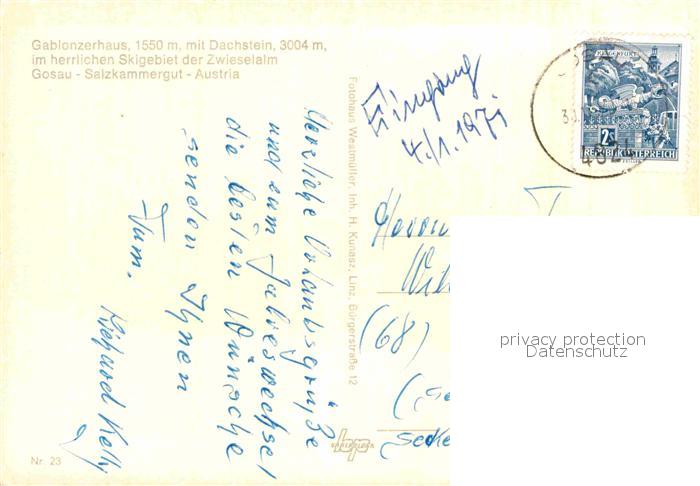 Gablonzerhaus, 1550 m, mit Dachstein, 3004 m,
im herrlichen Skigebiet der Zwieselalm
Gosau - Salzkammergut - Austria
Eingang
4./1.1971
KLAGENFURT
2S
REPUBLIK ÖSTERREICH
482
Herzliche Urlaubsgrüße
und zum Jahreswechsel
die besten Wünsche
senden Ihnen
Fam.
Richard Kelly
Fotohaus Westmüller, Inh. H. Kunasz, Linz, Bürgerstraße 12
Herrn
(68)
privacy protection
Datenschutz
Nr. 23